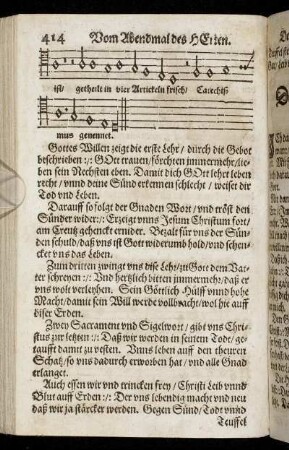 414 Vom Abendmal des HErzen.
ist/ getheilt in vier Artickeln frisch/ Catechis
mus genennet.
Gottes Willen zeigt die erste Lehr/ durch die Gebot
beschrieben :/: GOtt trauen/förchten immermehr/lie-
ben sein Nechsten eben. Damit dich GOtt lehrt leben
recht/ vnnd deine Sünd erkennen schlecht/ weiset dir
Tod vnd Leben.
Darauff so folgt der Gnaden Wort/ vnd tröst den
Sünder wider :/: Erzeigt vnns Jesum Christum fort/
am Creutz gehenckt ernider. Bezalt für vns der Sün-
den schuld/daß vns ist Gott widerumb hold/vnd schen-
cket vns das Leben.
Zum dritten zwingt vns dise Lehr/zu Gott dem Vat-
ter schreyen :/: Vnd hertzlich bitten immermehr/daß er
vns wolt verleyhen. Sein Göttlich Hülff vnnd hohe
Macht/damit sein Will werde vollbracht/wol hie auff
diser Erden.
Zwey Sacrament vnd Sigelwort/ gibt vns Chri-
stus zur letzten :/: Daß wir werden in seinem Todt/ge-
taufft damit zu vesten. Vnns leben auff den theuren
Schatz/so vns dadurch erworben hat/vnd alle Gnad
erlanget.
Auch essen wir vnd trincken frey/ Christi Leib vnnd
Blut auff Erden :/: Der vns lebendig macht vnd neu
daß wir ja stärcker werden. Gegen Sünd/Todt vnnd
Teuffel